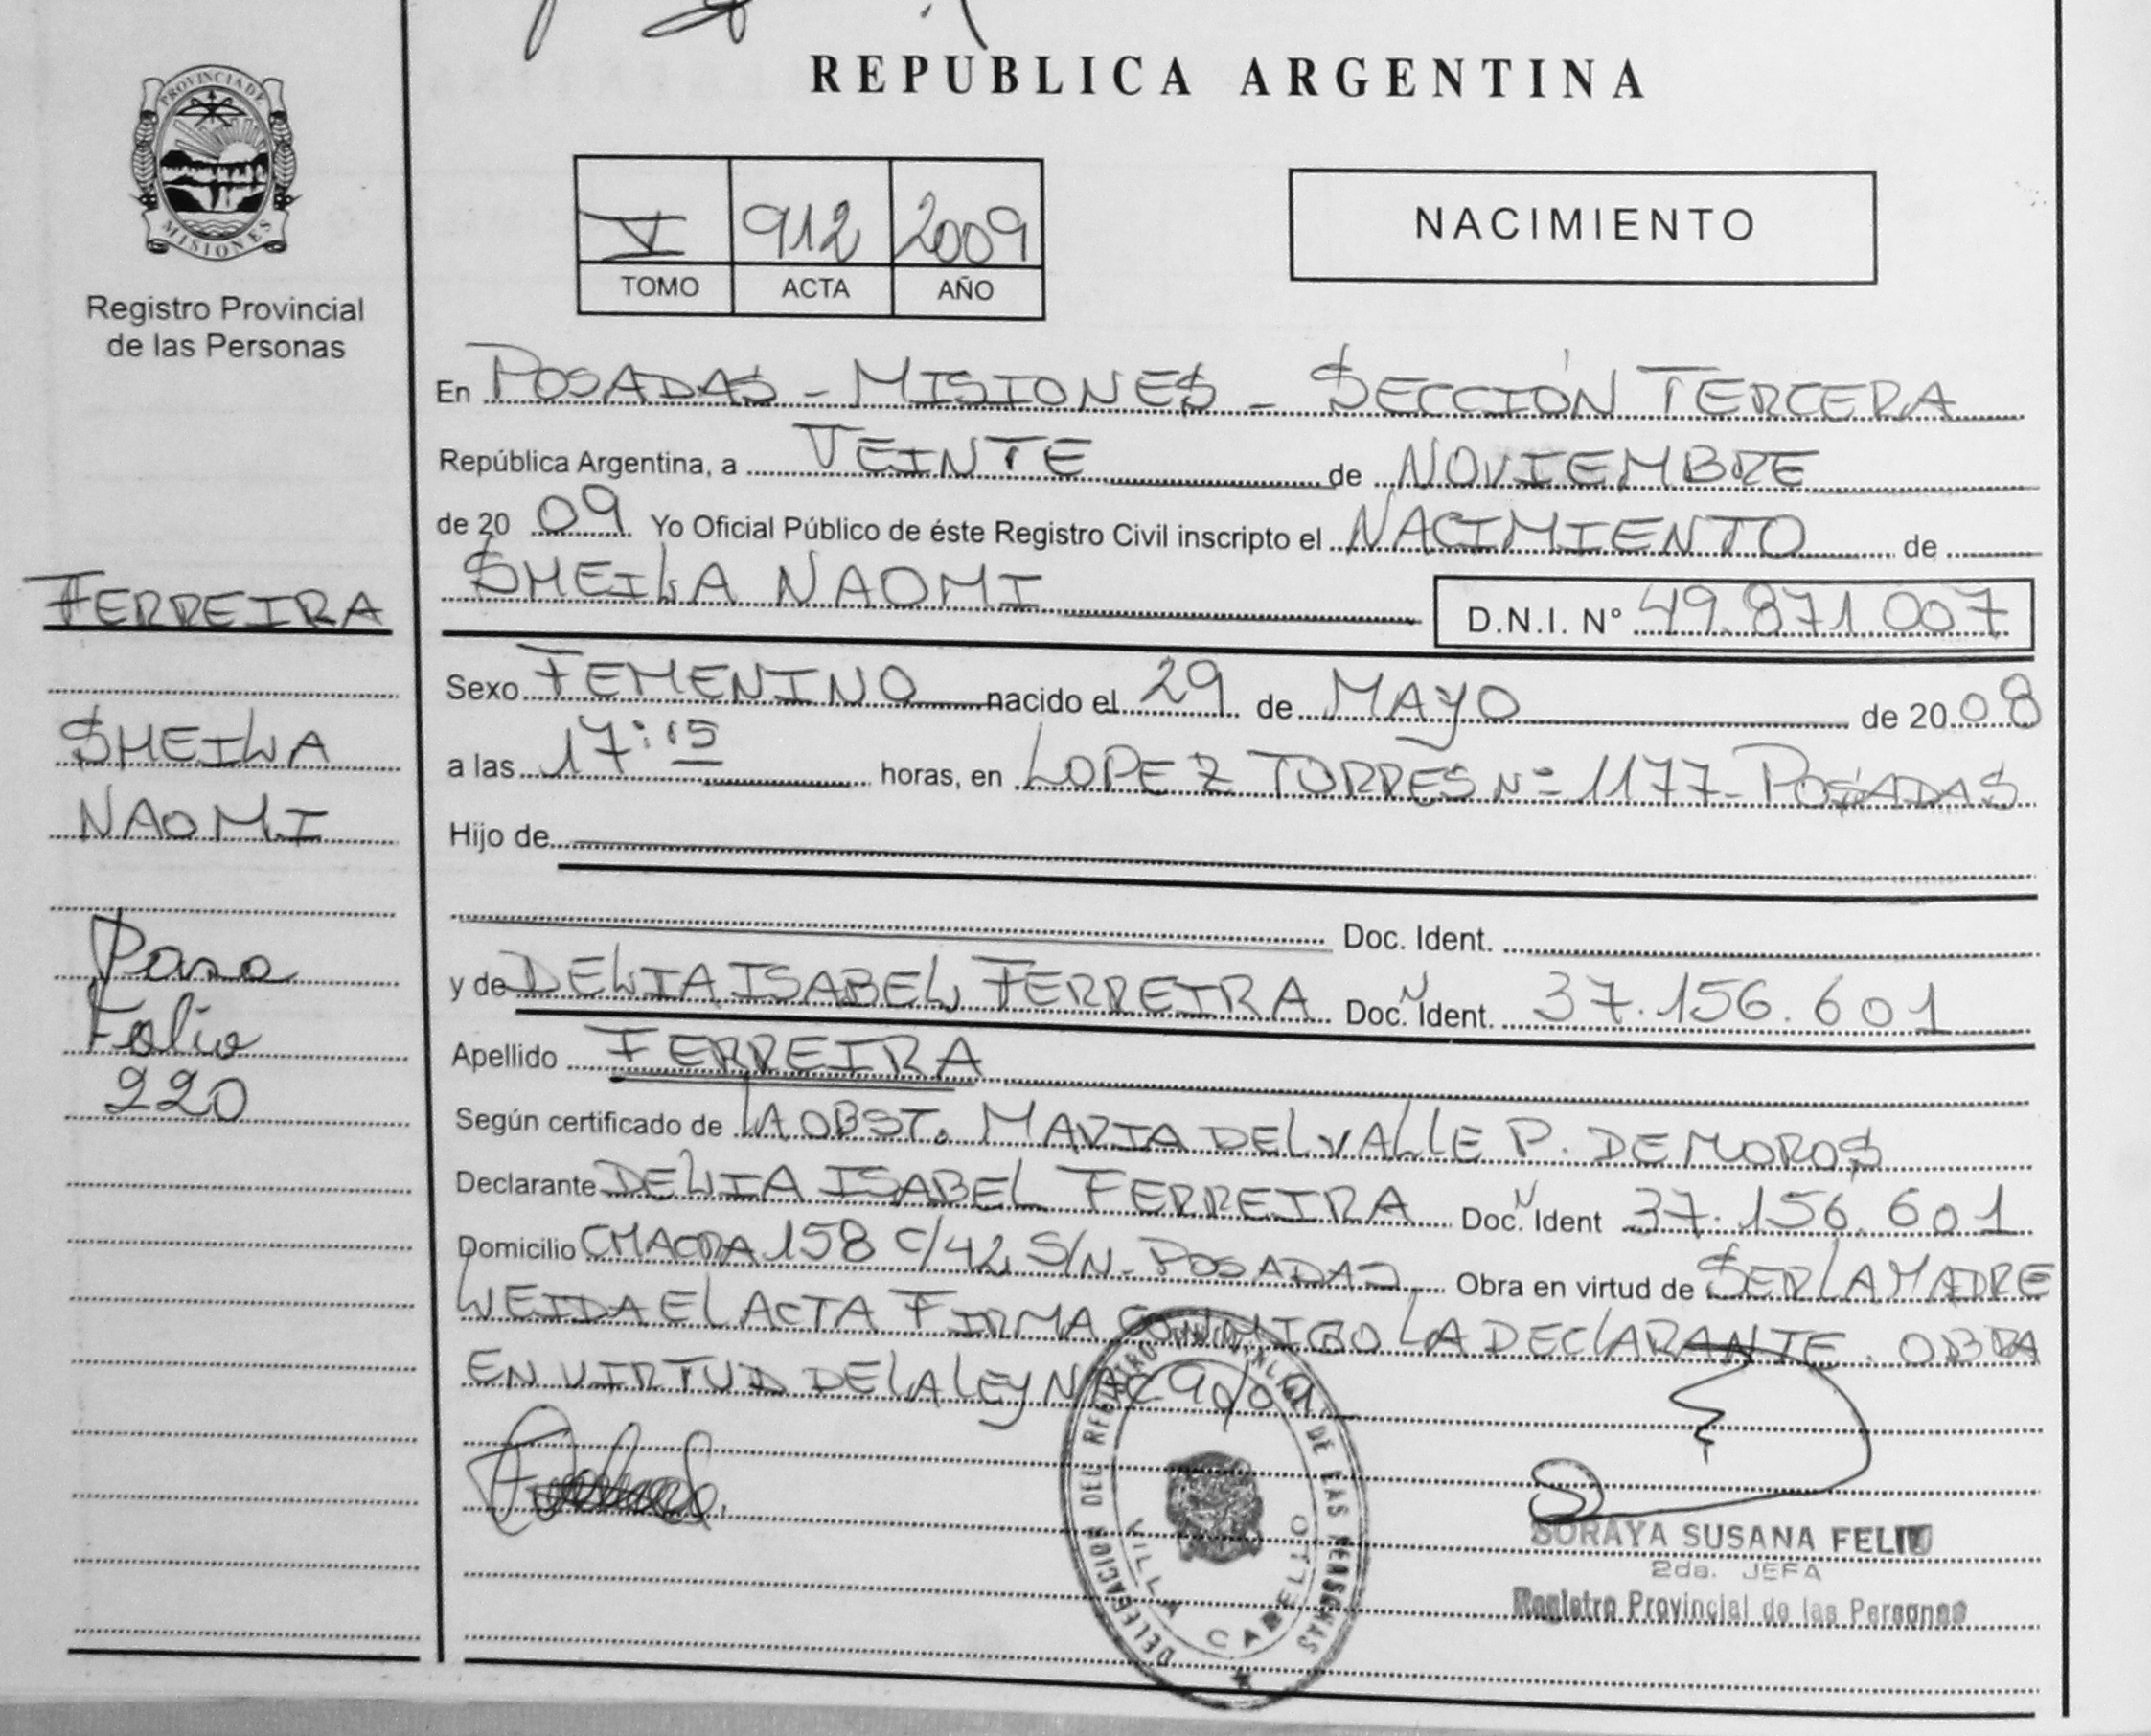 PROVINCIA DE
MISIONES
Registro Provincial
de las Personas
FERREIRA
SHEILA
NAOMI
Pasa
Folio
220
REPUBLICA ARGENTINA
V 912 2009
TOMO ACTA AÑO
NACIMIENTO
En POSADAS - MISIONES - SECCIÓN TERCERA
República Argentina, a VEINTE de NOVIEMBRE
de 20 09 Yo Oficial Público de éste Registro Civil inscripto el NACIMIENTO de
SHEILA NAOMI D.N.I. N° 49.871.007
Sexo FEMENINO nacido el 29 de MAYO de 20 08
a las 17:15 horas, en LOPEZ TORRES Nº 1177 - POSADAS
Hijo de
Doc. Ident.
y de DELIA ISABEL FERREIRA Doc. N Ident. 37.156.601
Apellido FERREIRA
Según certificado de LA OBST. MARIA DEL VALLE P. DE MOROS
Declarante DELIA ISABEL FERREIRA Doc. N Ident 37.156.601
Domicilio CHACRA 158 C/42 S/N - POSADAS Obra en virtud de SER LA MADRE
LEIDA EL ACTA FIRMA CONMIGO LA DECLARANTE. OBRA
EN VIRTUD DE LA LEY
DELEGACION DEL REGISTRO PROVINCIAL DE LAS PERSONAS
VILLA CABELLO
SORAYA SUSANA FELIU
2da. JEFA
Registro Provincial de las Personas